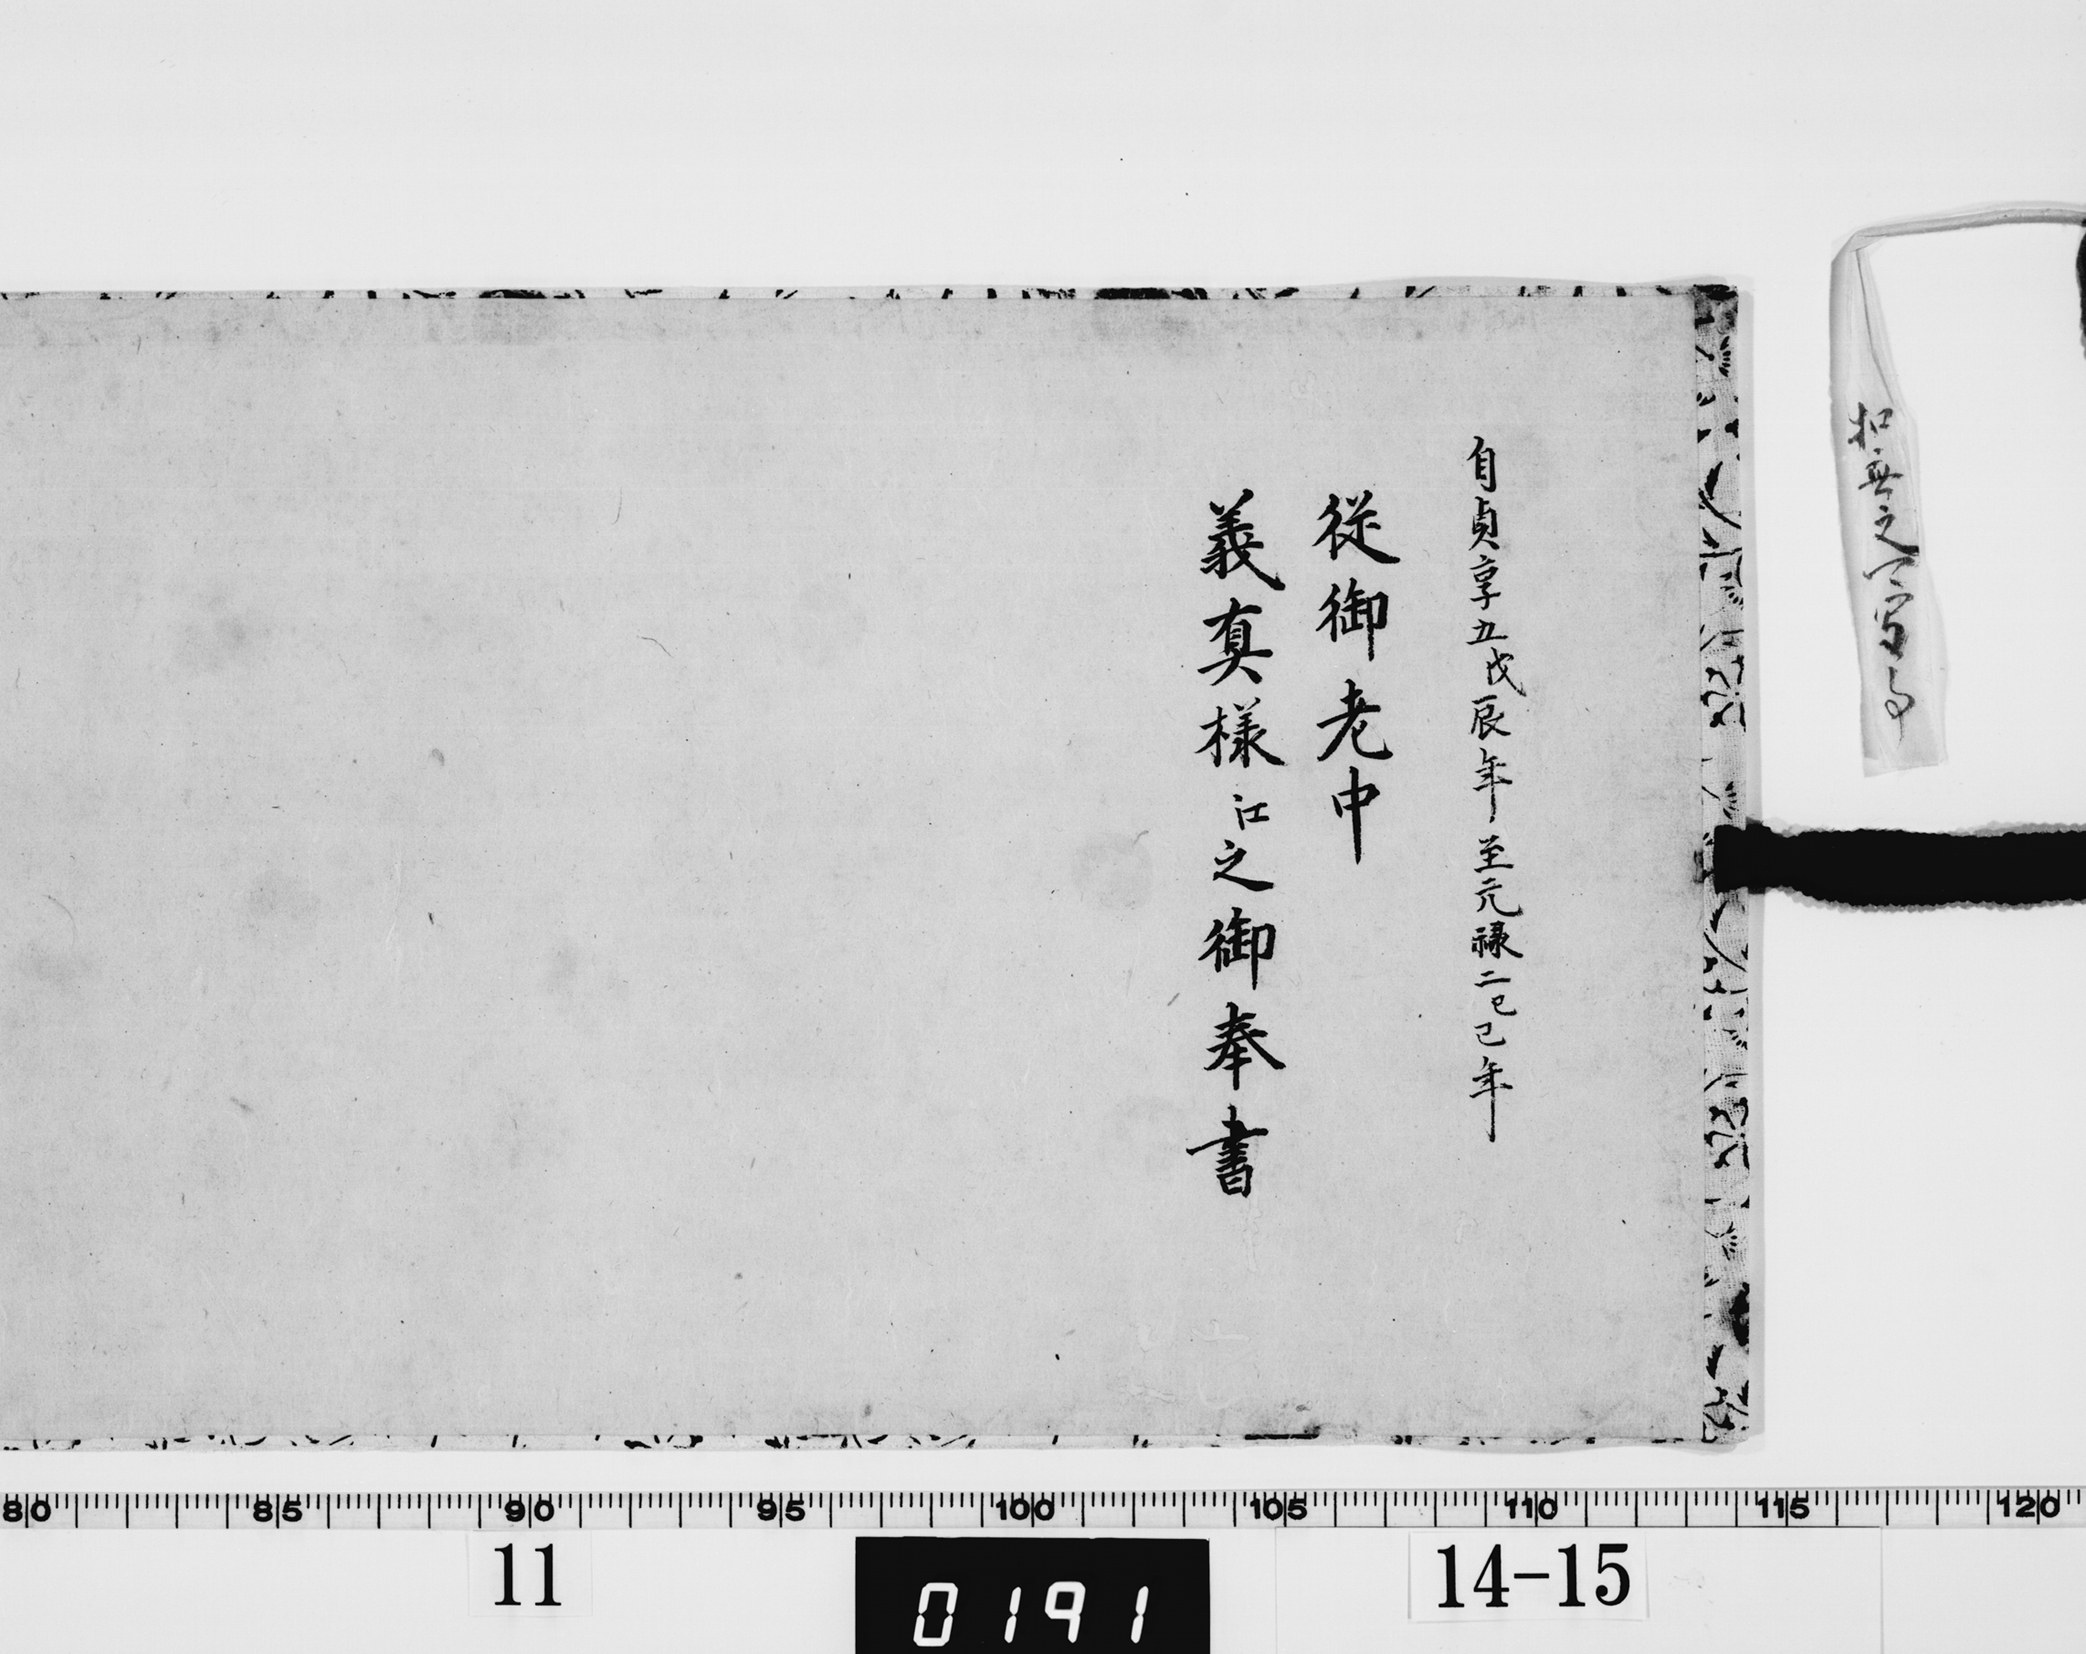 扣無之分写
自貞享五戊辰年至元禄二己巳年
従御老中
義真様江之御奉書
80 85 90 95 100 105 110 115 120
11
0191
14-15